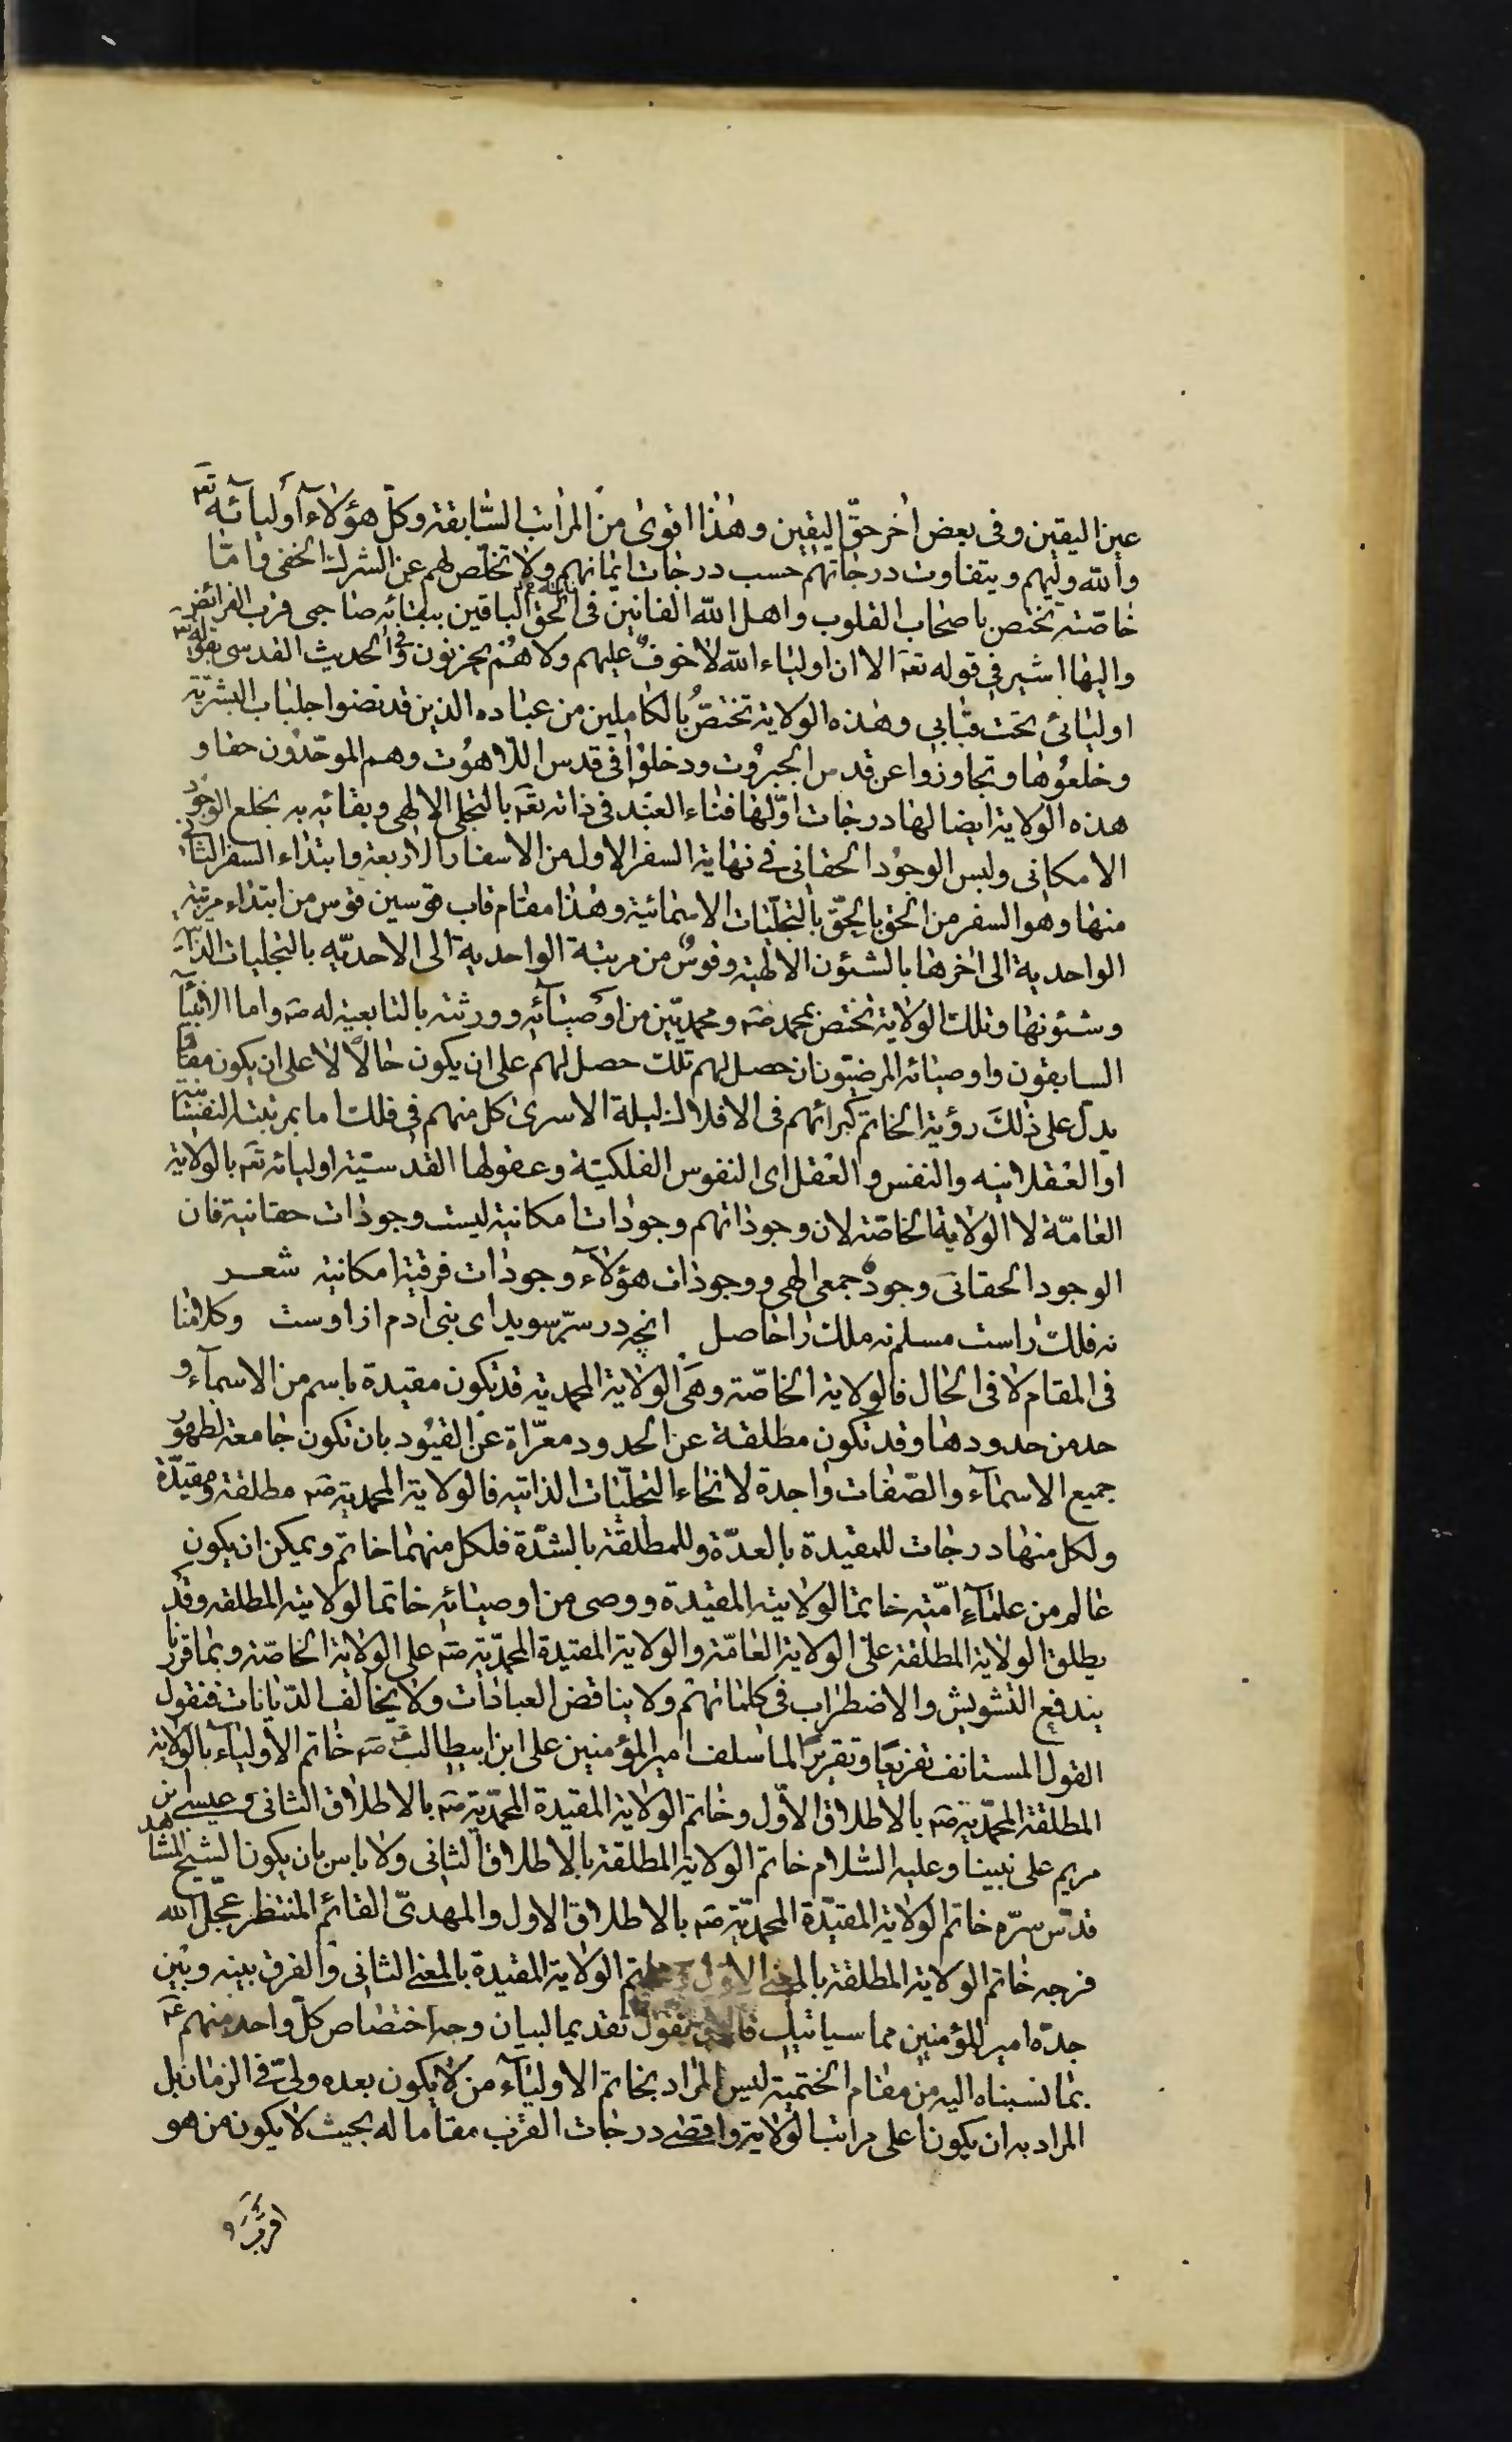 عين اليقين وفى بعض اخر حقّ اليقين وهذا اقوى من المراتب السّابقة وكلّ هؤلاء اوليائه تعه
والله وليهم ويتفاوت درجاتهم حسب درجات ايمانهم ولا تخلّص لهم عن الشرك الخفى وامّا
خاصّته تختص باصحاب القلوب واهل الله الفانين فى الحق الباقين ببقائه صاحبى قرب الفرائض
واليها اشير في قوله تعه الا ان اولياء الله لا خوف عليهم ولا هم يحزنون وفى الحديث القدسى بقوله تعه
اوليائى تحت قبابى وهذه الولاية تختصّ بالكاملين من عباده الذين قد نضوا جلباب البشرية
وخلعوها وتجاوزوا عن قدس الجبروت ودخلوا فى قدس اللّاهوت وهم الموحّدون حقا و
هذه الولاية ايضا لها درجات اوّلها فناء العبد فى ذاته تعه بالتجلى الالهى وبقائه به بخلع الوجود
الامكانى ولبس الوجود الحقانى فى نهاية السفر الاول من الاسفار الاربعة وابتداء السفر الثانى
منها وهو السفر من الحق بالحقّ بالتجلّيات الاسمائية وهذا مقام قاب قوسين قوس من ابتداء مرتبة
الواحدية الى اخرها بالشئون الالهية وقوس من مرتبة الواحدية الى الاحديّه بالتجليات الذّاتية
وشئونها وتلك الولاية تختص بمحمد صه ومحمديّين من اوصيائه وورثته بالتابعية له صه واما الانبياء
السابقون واوصيائه المرضيّون ان حصل لهم تلك حصل لهم على ان يكون حالا لا على ان يكون مقاما
يدلّ على ذلك رؤية الخاتم كبرائهم فى الافلاك ليلة الاسرى كل منهم فى فلك اما بمرتبته النفسانية
او العقلانيه والنفس والعقل اى النفوس الفلكيّة وعقولها القدسيّة اوليائه تعه بالولاية
العامّة لا الولاية الخاصّة لان وجوداتهم وجودات امكانية ليست وجودات حقانية فان
الوجود الحقانى وجود جمعى الهى ووجودات هؤلاء وجودات فرقية امكانية شعر
نه فلك راست مسلم نه ملك را حاصل انچه در سرّ سويداى بنى ادم از اوست وكلامنا
فى المقام لا فى الحال فالولاية الخاصّة وهى الولاية المحمدية قد تكون مقيدة باسم من الاسماء و
حد من حدودها وقد تكون مطلقة عن الحدود معرّاة عن القيود بان تكون جامعة لظهور
جميع الاسماء والصّفات واجدة لانحاء التجلّيات الذاتيه فالولاية المحمدية صه مطلقة ومقيّدة
ولكل منها درجات للمقيدة بالعدّة وللمطلقة بالشدّة فلكل منهما خاتم ويمكن ان يكون
عالم من علماء امّته خاتما لولايته المقيّدة ووصى من اوصيائه خاتما لولايته المطلقه وقد
يطلق الولاية المطلقة على الولاية العامّة والولاية المقيدة المحمّدية صه على الولاية الخاصّة وبما قررنا
يندفع التشويش والاضطراب فى كلماتهم ولا يناقض العبادات ولا يخالف الدّيانات فنقول
القول المستانف تفريعا وتقريرا لما سلف امير المؤمنين على ابن ابيطالب صه خاتم الاولياء بالولاية
المطلقة المحمّدية صه بالاطلاق الاوّل وخاتم الولاية المقيدة المحمّدية صه بالاطلاق الثانى وعيسى بن
مريم على نبينا وعليه السّلام خاتم الولاية المطلقة بالاطلاق الثانى ولا باس بان يكون الشيخ المشاهد
قدّس سرّه خاتم الولاية المقيّدة المحمديّة صه بالاطلاق الاول والمهدىّ القائم المنتظر عجّل الله
فرجه خاتم الولاية المطلقة بالمعنى الاول وخاتم الولاية المقيدة بالمعنى الثانى والفرق بينه وبين
جدّه امير المؤمنين مما سياتيك نقول تقديما لبيان وجه اختصاص كلّ واحد منهم عه
بما نسبناه اليه من مقام الختمية ليس المراد بخاتم الاولياء من لا يكون بعده ولىّ فى الزمان بل
المراد به ان يكون اعلى مراتب الولاية واقصى درجات القرب مقاما له بحيث لا يكون من هو
اقرب